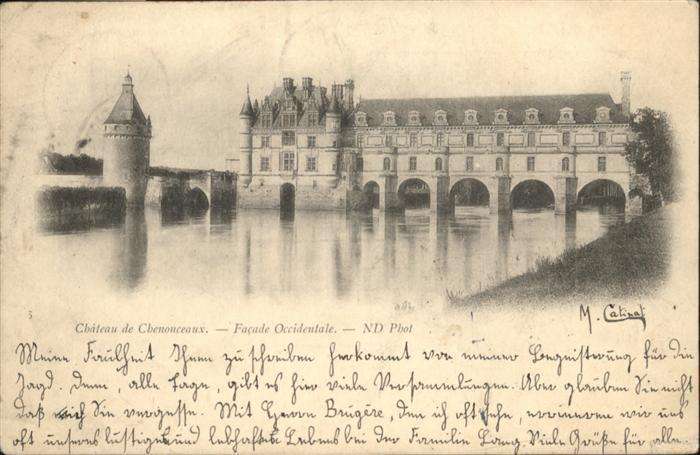 Château de Chenonceaux. — Façade Occidentale. — ND Phot
M. Catinat
Meine Faulheit Ihnen zu schreiben herkommt von meiner Begeisterung für die
Jagd. Denn, alle Tage, gibt es hier viele Versammlungen. Aber glauben Sie nicht
daß ich Sie vergesse. Mit Herrn Brugère, den ich oft sehe, erinneren wir uns
oft unseres lustiges und lebhaftes Lebens bei der Familie Lang. Viele Grüße für alle.